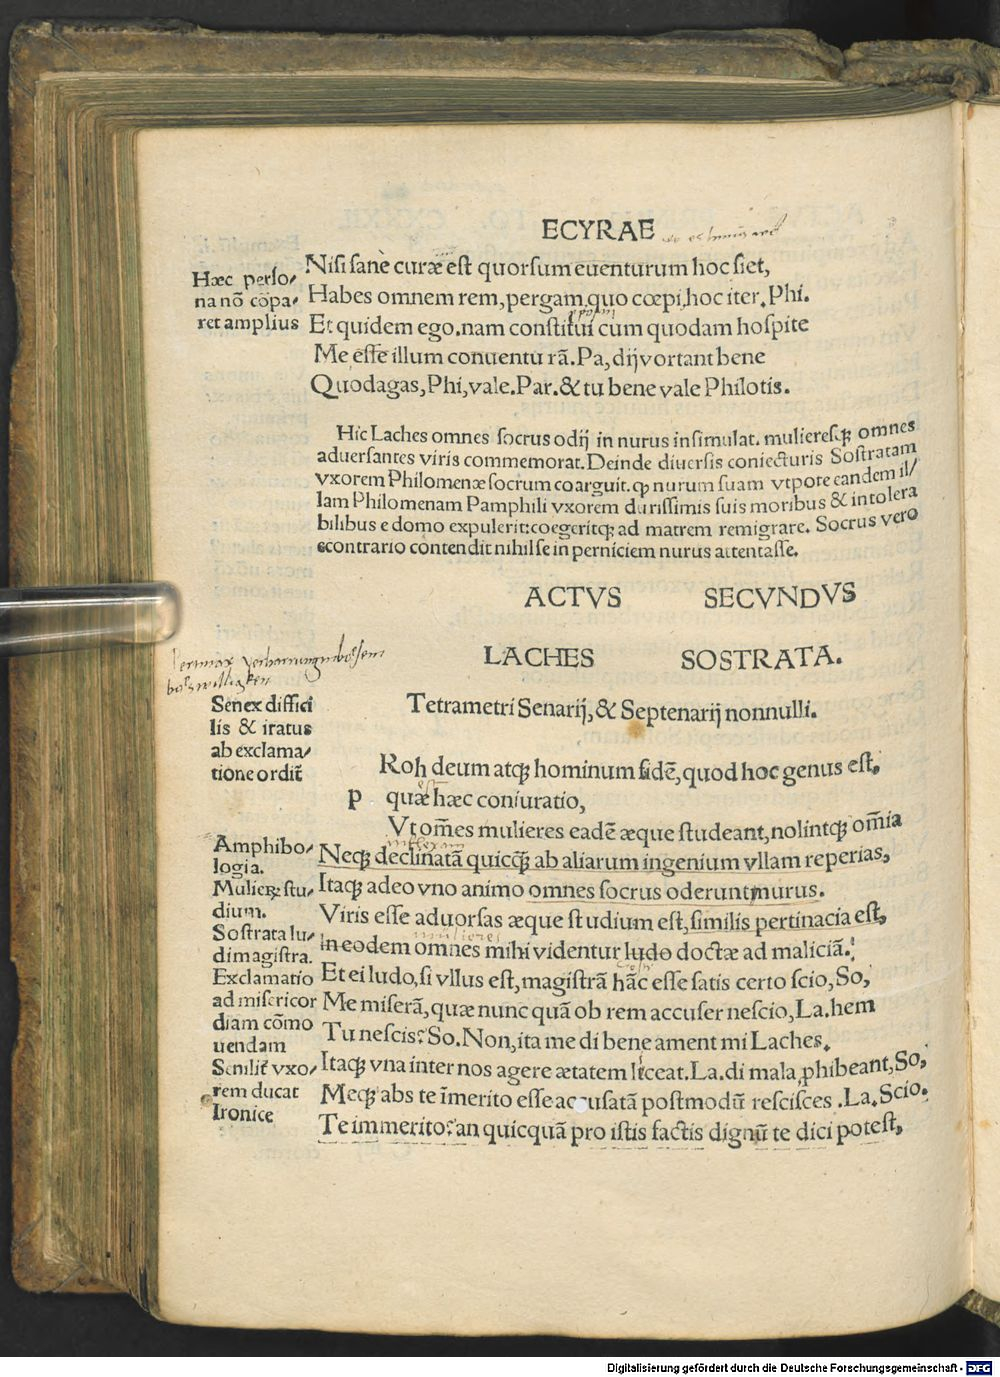 ECYRAE
Nisi sane curæ est quorsum euenturum hoc siet,
Hæc perso/
na nō cōpa/
ret amplius
Habes omnem rem, pergam quo cœpi, hoc iter. Phi.
Et quidem ego. nam constitui cum quodam hospite
Me esse illum conuentu rā. Pa, dij vortant bene
Quod agas, Phi, vale. Par. & tu bene vale Philotis.
Hic Laches omnes socrus odij in nurus insimulat. mulieresqꝫ omnes
aduersantes viris commemorat. Deinde diuersis coniecturis Sostratam
vxorem Philomenæ socrum coarguit. ꝙ nurum suam vtpote eandem il/
lam Philomenam Pamphili vxorem durissimis suis moribus & intolera
bilibus e domo expulerit: coegeritqꝫ ad matrem remigrare. Socrus vero
econtrario contendit nihil se in perniciem nurus attentasse.
ACTVS SECVNDVS
LACHES SOSTRATA.
Pertinax
Senex diffici
lis & iratus
ab exclama/
tione ordit̄
Tetrametri Senarij, & Septenarij nonnulli.
p Roh deum atqꝫ hominum fidē, quod hoc genus est,
quæ hæc coniuratio,
est
Vt om̄es mulieres eadē æque studeant, nolintqꝫ om̄ia
Amphibo/
logia.
Mulieꝝ stu/
dium.
Sostrata lu/
di magistra.
Exclamatio
ad misericor
diam cōmo
uendam
Senilit̄ vxo/
rem ducat
Ironice
Neqꝫ declinatā quicqꝫ̄ ab aliarum ingenium vllam reperias,
Itaqꝫ adeo vno animo omnes socrus oderunt nurus.
Viris esse aduorsas æque studium est, similis pertinacia est,
mulieres
in eodem omnes mihi videntur ludo doctæ ad maliciā.
Et ei ludo, si vllus est, magistrā hāc esse satis certo scio, So,
Me miserā, quæ nunc quā ob rem accuser nescio, La. hem
Tu nescis? So. Non, ita me di bene ament mi Laches.
Itaqꝫ vna inter nos agere ætatem liceat. La. di mala phibeant, So,
Meqꝫ abs te īmerito esse accusatā postmodū rescisces. La. Scio.
Te immerito? an quicquā pro istis factis dignū te dici potest,
Digitalisierung gefördert durch die Deutsche Forschungsgemeinschaft - DFG